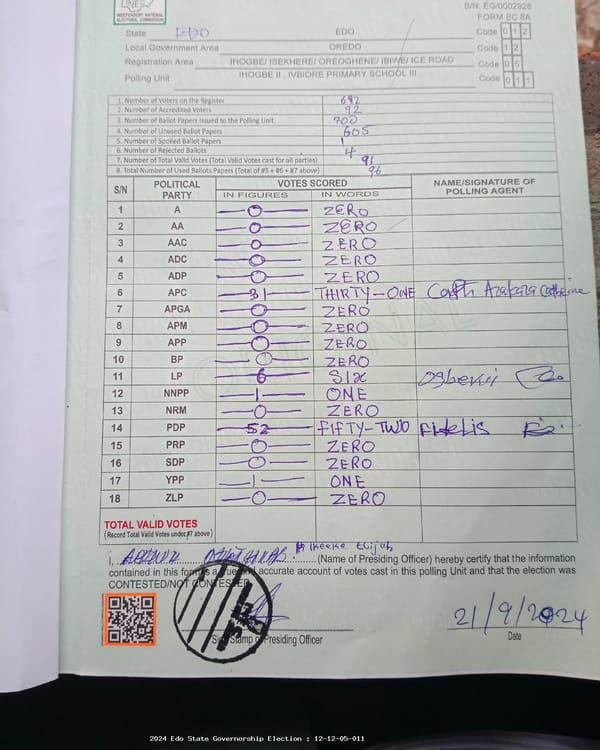 S/N: EG/0002928
INEC
INDEPENDENT NATIONAL
ELECTORAL COMMISSION
FORM EC 8A
State EDO EDO Code 0 1 2
Local Government Area OREDO Code 1 2
Registration Area IHOGBE/ ISEKHERE/ OREOGHENE/ IBIWE/ ICE ROAD Code 0 5
Polling Unit IHOGBE II , IVBIORE PRIMARY SCHOOL III Code 0 1 1
1. Number of Voters on the Register 692
2. Number of Accredited Voters 92
3. Number of Ballot Papers Issued to the Polling Unit 700
4. Number of Unused Ballot Papers 605
5. Number of Spoiled Ballot Papers 1
6. Number of Rejected Ballots 4
7. Number of Total Valid Votes (Total Valid Votes cast for all parties) 91
8. Total Number of Used Ballots Papers (Total of #5 + #6 + #7 above) 96
S/N POLITICAL PARTY VOTES SCORED NAME/SIGNATURE OF POLLING AGENT
IN FIGURES IN WORDS
1 A 0 ZERO
2 AA 0 ZERO
3 AAC 0 ZERO
4 ADC 0 ZERO
5 ADP 0 ZERO
6 APC 31 THIRTY-ONE
7 APGA 0 ZERO
8 APM 0 ZERO
9 APP 0 ZERO
10 BP 0 ZERO
11 LP 6 SIX
12 NNPP 1 ONE
13 NRM 0 ZERO
14 PDP 52 FIFTY-TWO FIDELIS
15 PRP 0 ZERO
16 SDP 0 ZERO
17 YPP 1 ONE
18 ZLP 0 ZERO
TOTAL VALID VOTES
(Record Total Valid Votes under #7 above)
Ikeeke Elijah
I, (Name of Presiding Officer) hereby certify that the information
contained in this form is a true and accurate account of votes cast in this polling Unit and that the election was
CONTESTED/NOT CONTESTED
21/9/2024
Sign/Stamp of Presiding Officer Date
2024 Edo State Governorship Election : 12-12-05-011